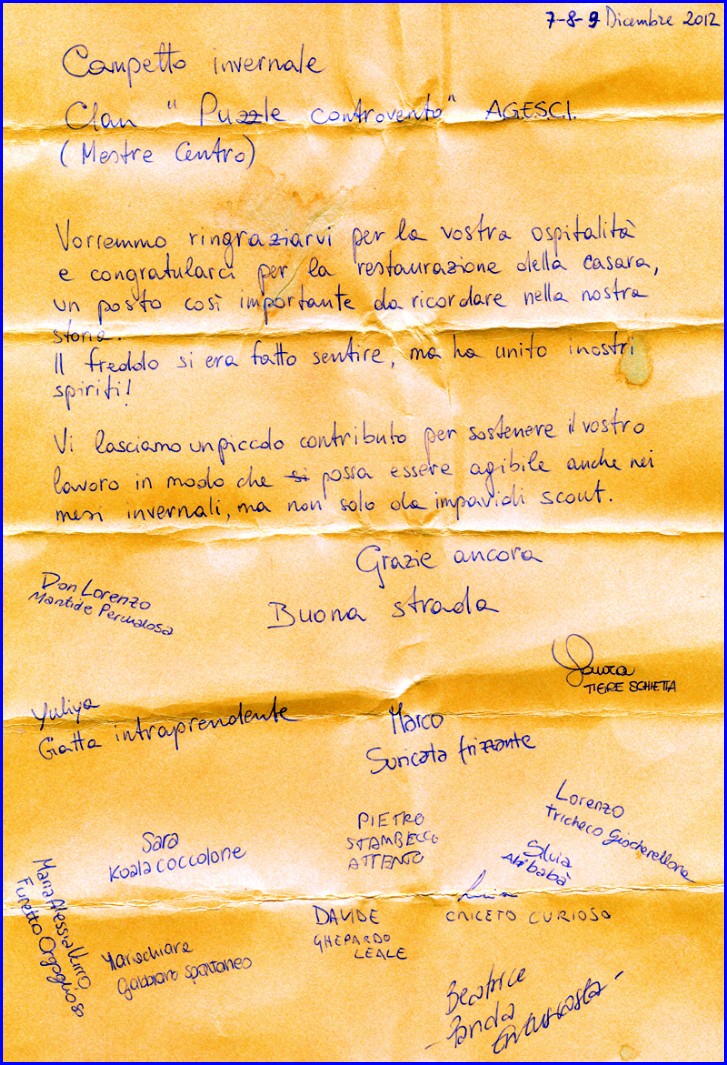 7-8-9 Dicembre 2012
Campetto invernale
Clan "Puzzle controvento" A.G.E.S.C.I.
(Mestre Centro)
Vorremmo ringraziarvi per la vostra ospitalità
e congratularci per la restaurazione della casara,
un posto così importante da ricordare nella nostra
storia.
Il freddo si era fatto sentire, ma ha unito i nostri
spiriti!
Vi lasciamo un piccolo contributo per sostenere il vostro
lavoro in modo che si possa essere agibile anche nei
mesi invernali, ma non solo da impavidi scout.
Grazie ancora
Buona strada
Don Lorenzo
Mantide Permalosa
Laura
TIGRE SCHIETTA
Yuliya
Gatta intraprendente
Marco
Suricata frizzante
Lorenzo
Tricheco Giocherellone
PIETRO
STAMBECCO
ATTENTO
Sara
Koala coccolone
Silvia
Ali babà
Maria Alessia
Furetto Orgoglioso
Mariachiara
Gabbiano spontaneo
DAVIDE
GHEPARDO
LEALE
CRICETO CURIOSO
Beatrice
- Panda
Entusiasta -